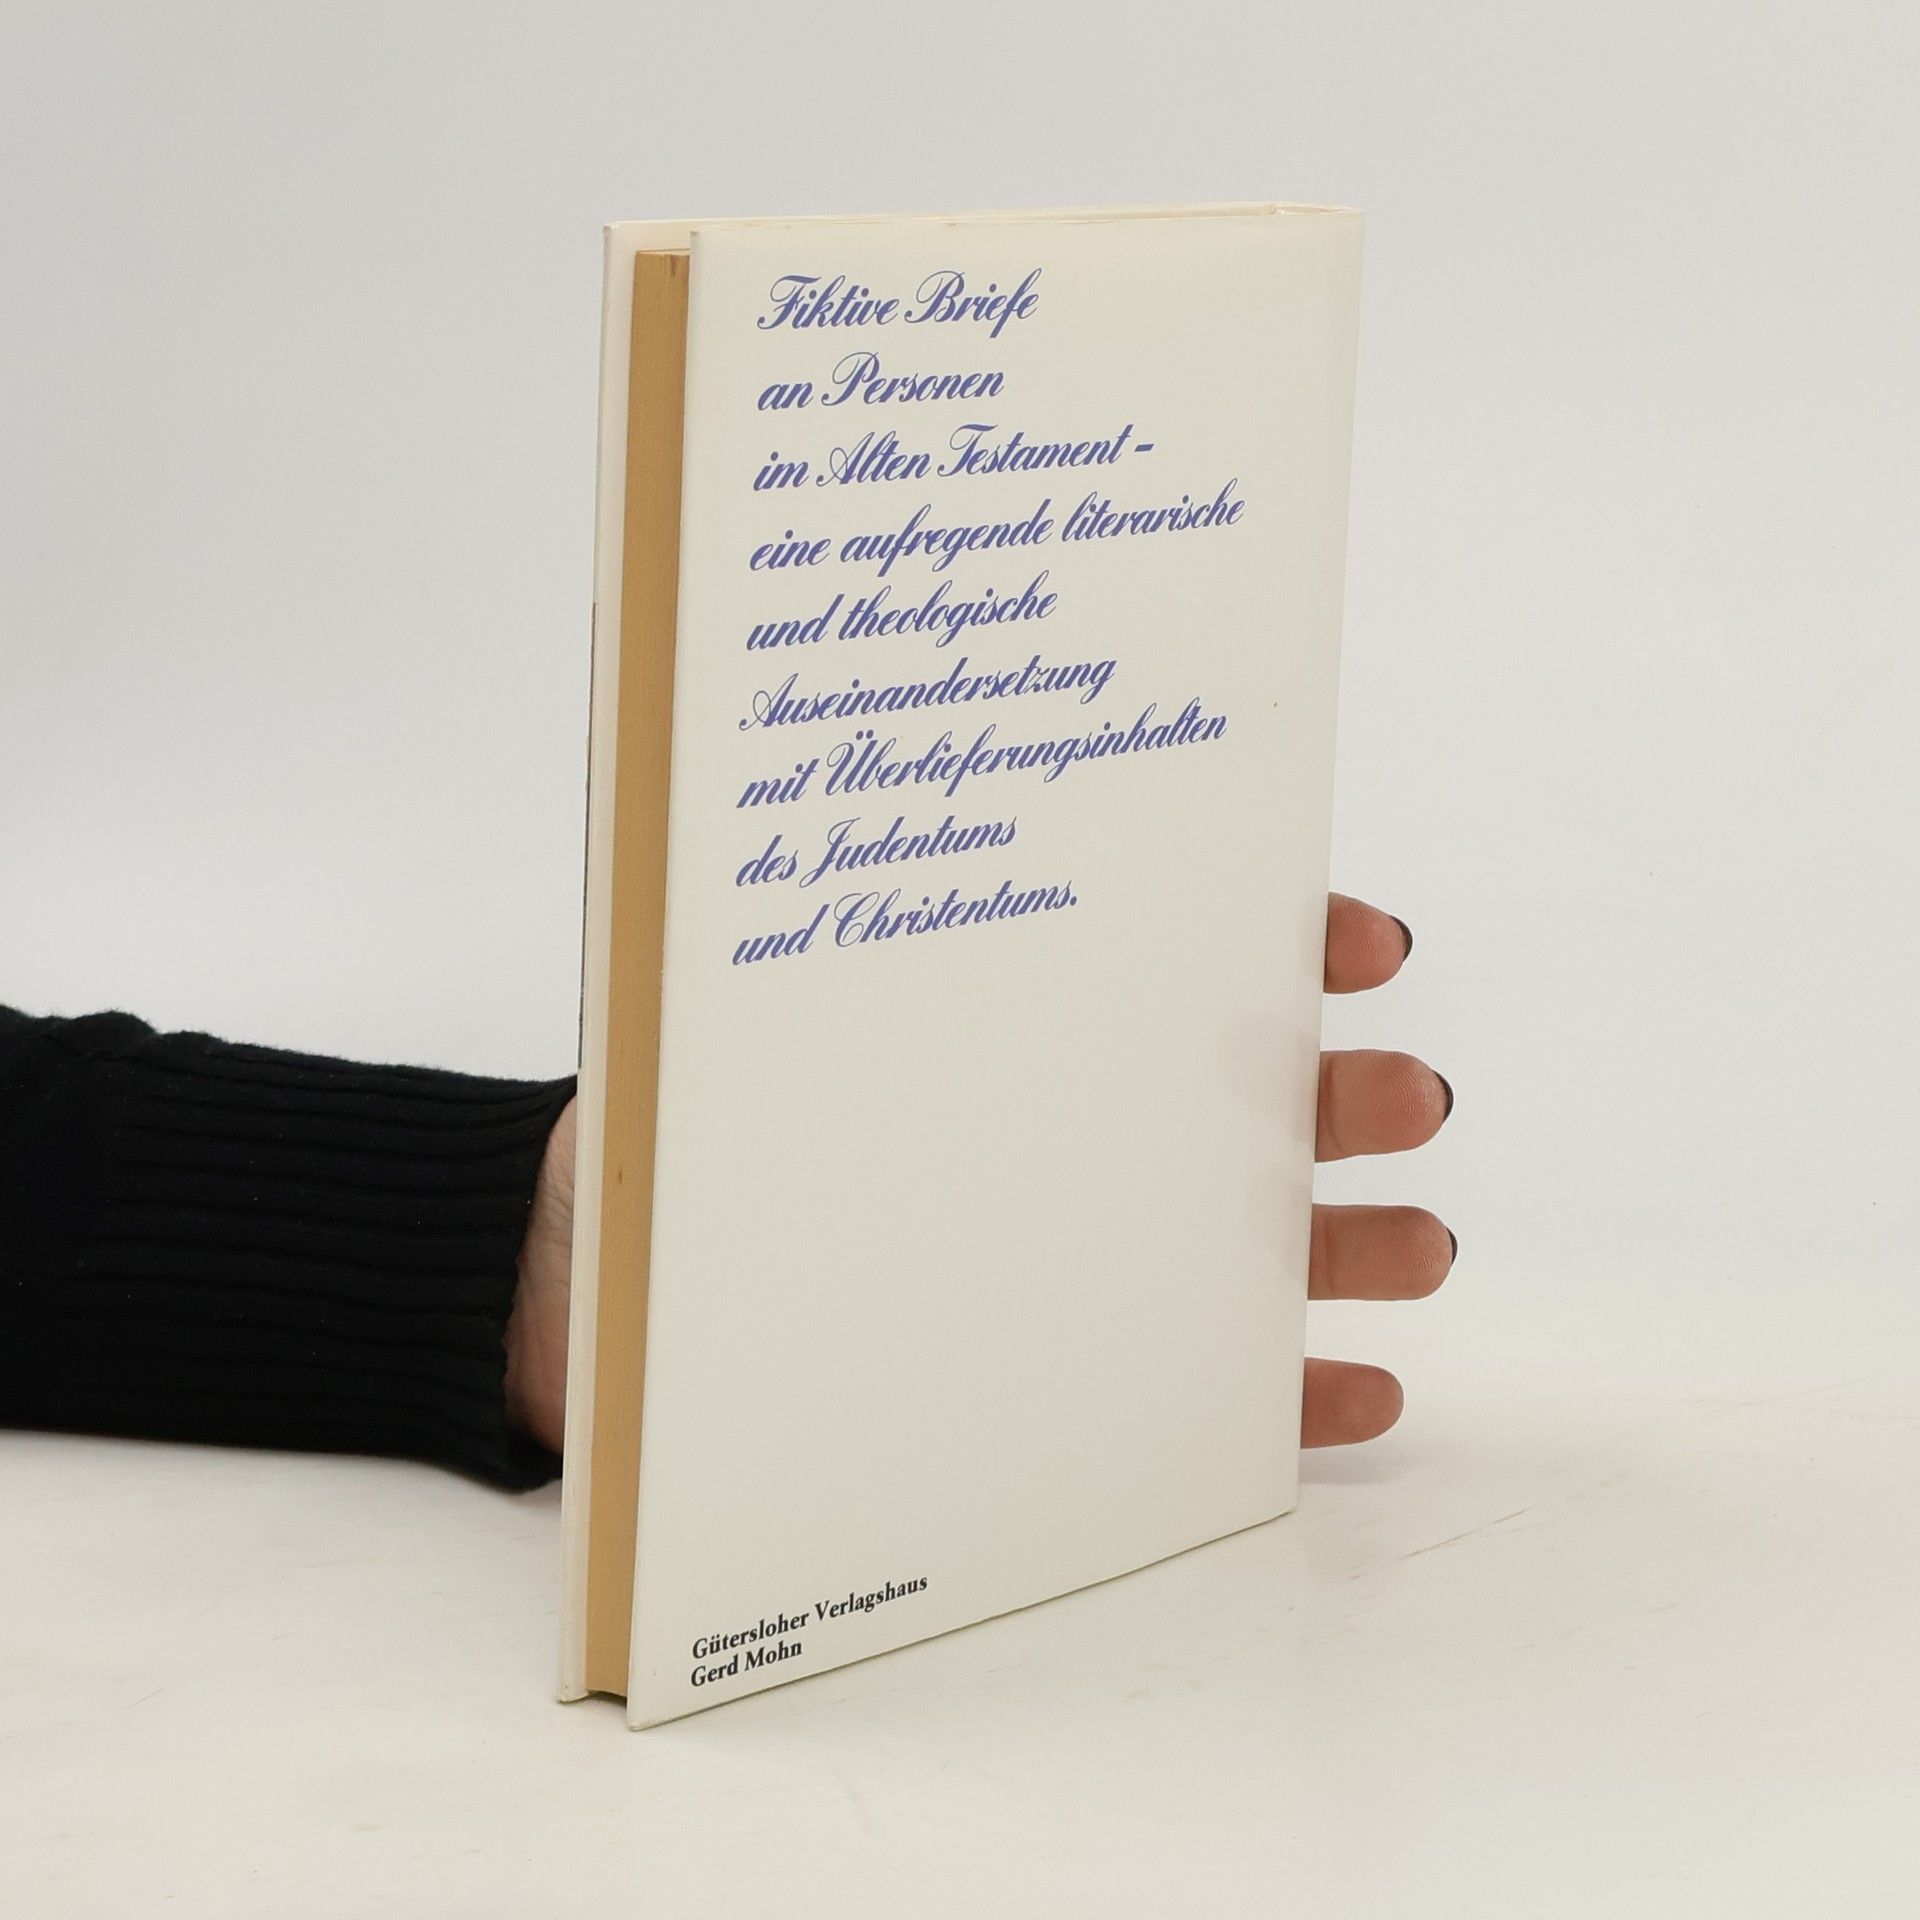 Fiktive Briefe
an Personen
im Alten Testament -
eine aufregende literarische
und theologische
Auseinandersetzung
mit Überlieferungsinhalten
des Judentums
und Christentums.
Gütersloher Verlagshaus
Gerd Mohn